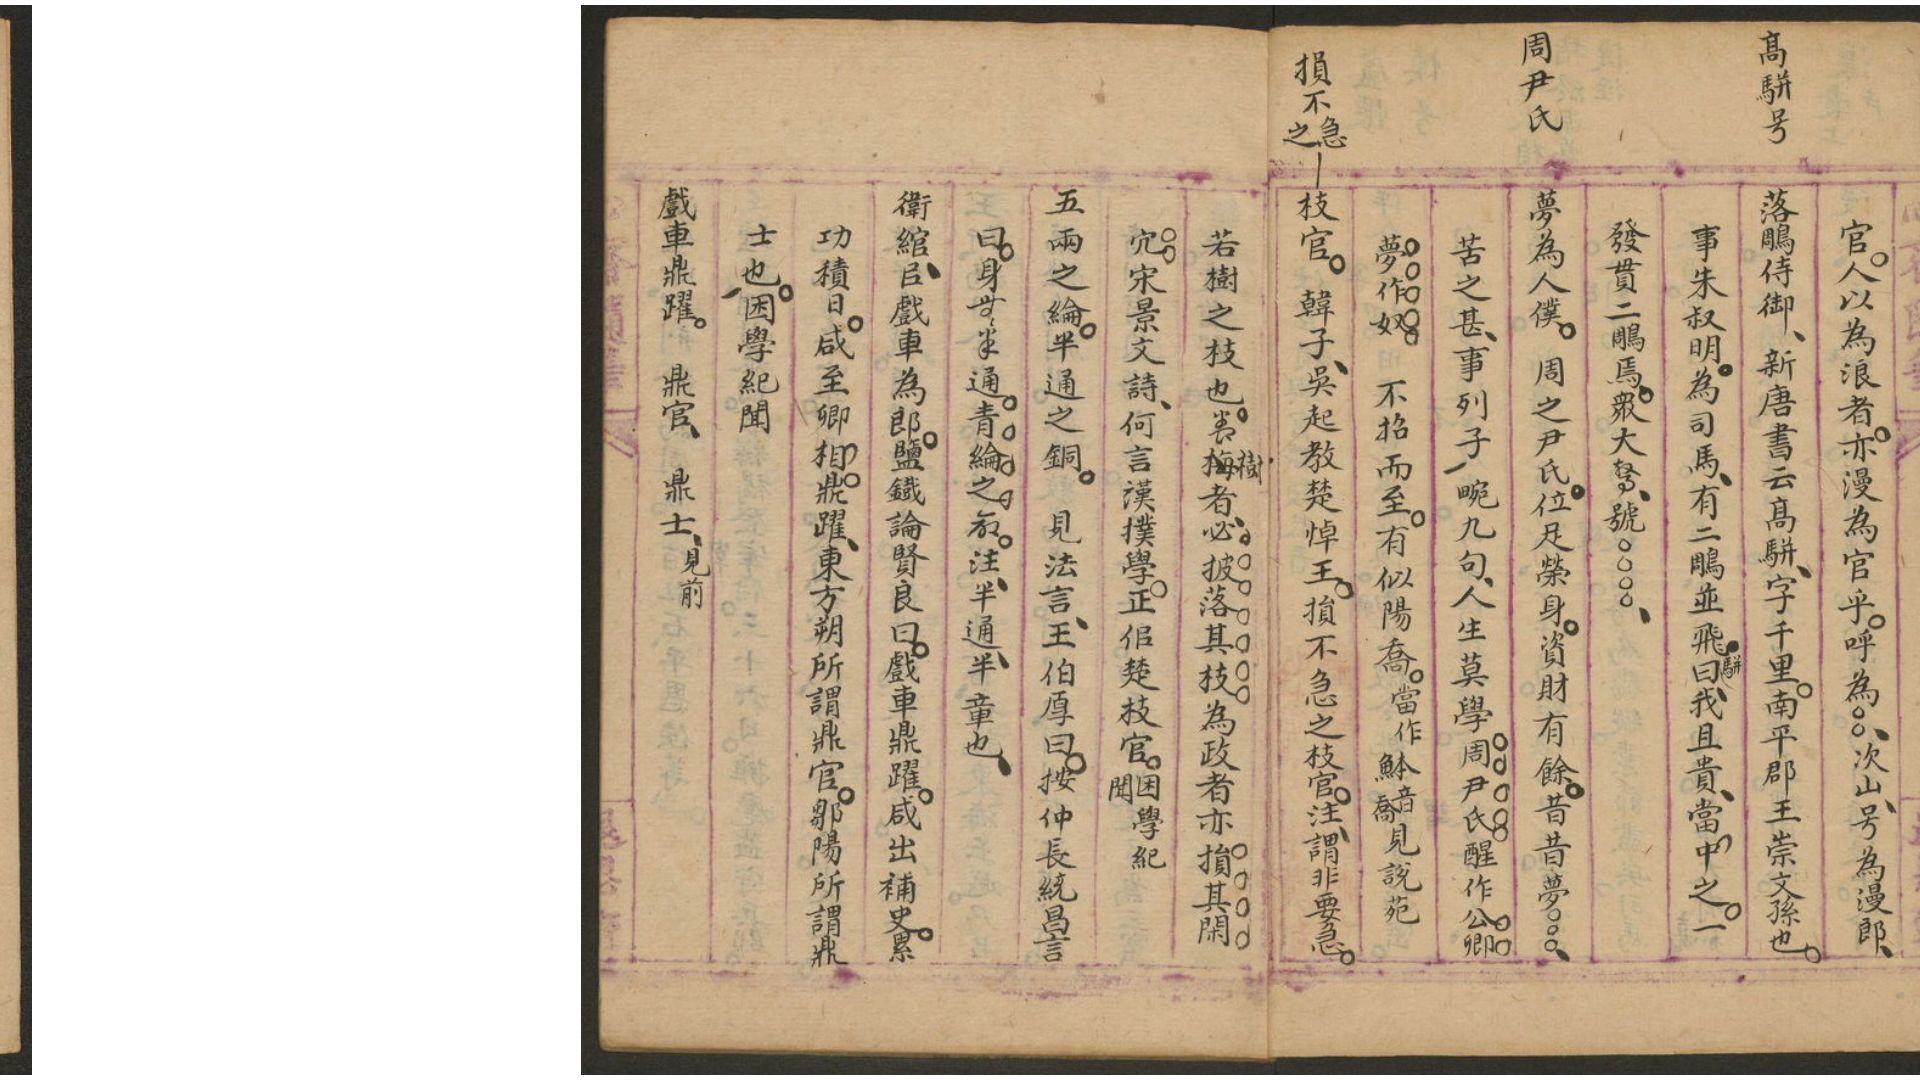 高駢号
周尹氏
損不急之
官。人以為浪者亦漫為官乎。呼為○○、次山、号為漫郎、
落鵰侍御、新唐書云高駢、字千里。南平郡王崇文孫也。
事朱叔明。為司馬、有二鵰並飛。駢曰、我且貴、當中之。一
發貫二鵰焉。衆大驚、號○○○○、
夢為人僕。周之尹氏位足榮身。資財有餘。昔昔夢○○○、
苦之甚、事列子、畹九句、人生莫學周尹氏醒作公卿
夢作奴 不招而至。有似陽喬。當作鮴音喬見說苑
枝官。韓子、吳起教楚悼王。損不急之枝官。注、謂非要急。
若樹之枝也。善樹梅者、必披落其枝為政者亦損其閑
宂。宋景文詩、何言漢撲學。正佀楚枝官。困學紀聞
五兩之綸。半通之銅。見法言、王伯厚曰。按仲長統昌言
曰。身無半通。青綸之命。注、半通、半章也、
衛綰臣、戲車為郎。鹽鐵論賢良曰。戲車鼎躍。咸出補吏。累
功積日。咸至卿相。鼎躍、東方朔所謂鼎官。鄒陽所謂鼎
士也。困學紀聞
戲車鼎躍。鼎官、鼎士、見前